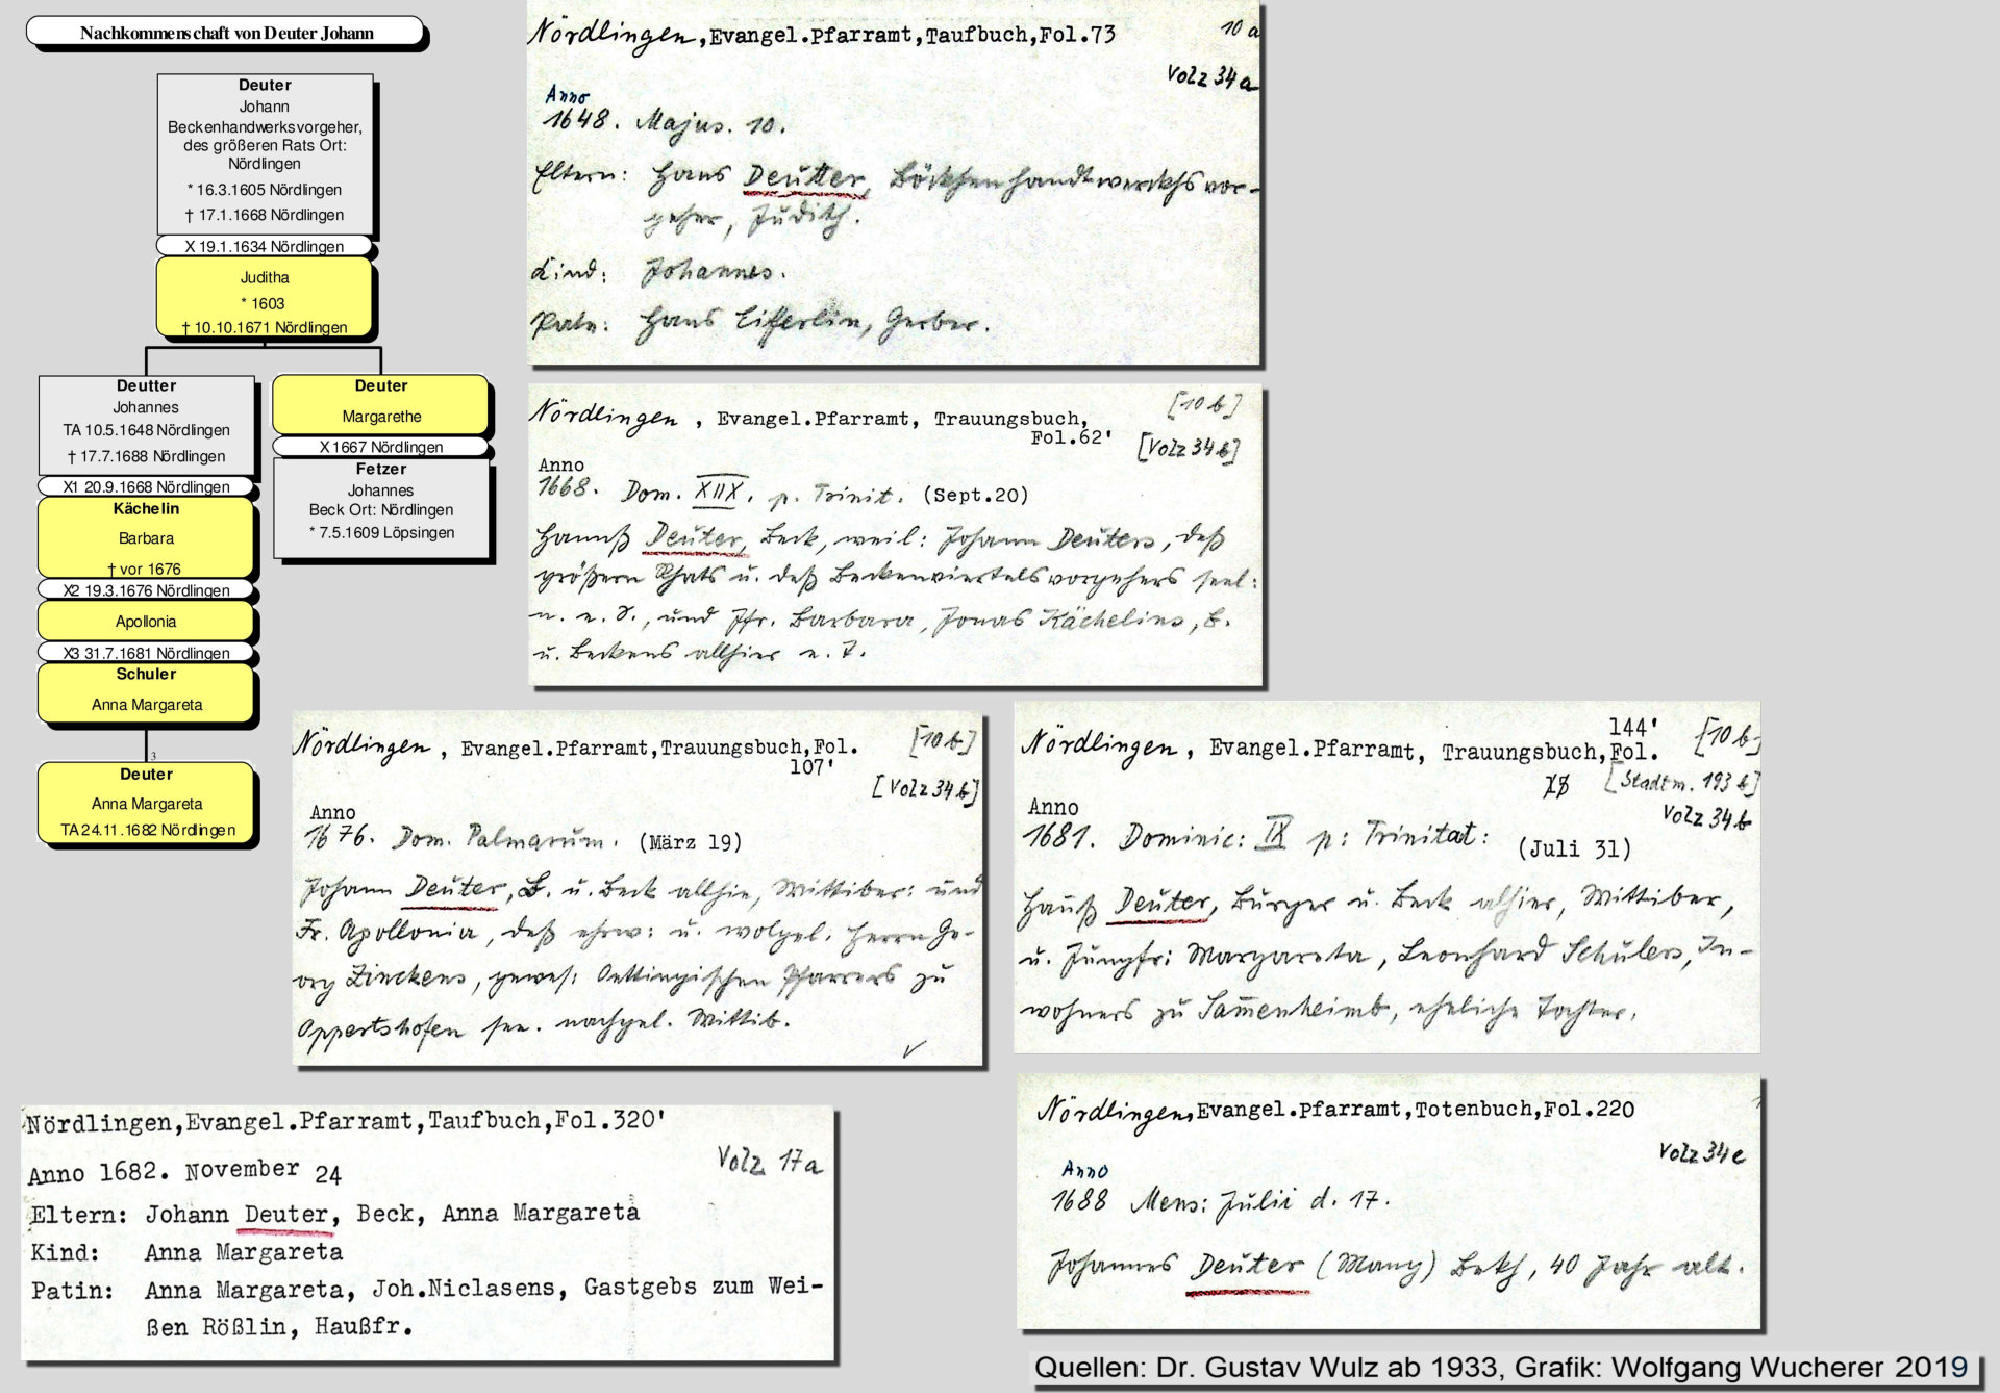 Nachkommenschaft von Deuter Johann
Deuter
Johann
Beckenhandwerksvorgeher,
des größeren Rats Ort:
Nördlingen
* 16.3.1605 Nördlingen
† 17.1.1668 Nördlingen
X 19.1.1634 Nördlingen
Juditha
* 1603
† 10.10.1671 Nördlingen
Deutter
Johannes
TA 10.5.1648 Nördlingen
† 17.7.1688 Nördlingen
X1 20.9.1668 Nördlingen
Kächelin
Barbara
† vor 1676
X2 19.3.1676 Nördlingen
Apollonia
X3 31.7.1681 Nördlingen
Schuler
Anna Margareta
3
Deuter
Anna Margareta
TA 24.11.1682 Nördlingen
Deuter
Margarethe
X 1667 Nördlingen
Fetzer
Johannes
Beck Ort: Nördlingen
* 7.5.1609 Löpsingen
Nördlingen, Evangel.Pfarramt, Taufbuch, Fol.73
10 a
Volz 34a
Anno
1648. Majus. 10.
Eltern: Hans Deutter, Böckhenhandtwerckhsvor-
geher, Judith.
Kind: Johannes.
Pate: Hans Eifferlin, Gerber.
Nördlingen, Evangel.Pfarramt, Trauungsbuch,
Fol.62'
[10 b]
[Volz 34b]
Anno
1668. Dom. XIIX. p. Trinit. (Sept.20)
Hannß Deuter, Beck, weil: Johann Deuters, deß
größern Rhats u. deß Beckenviertelsvorgehers seel:
n. e. S., und Jfr. Barbara, Jonas Kächelins, B.
u. Beckens allhier e. T.
Nördlingen, Evangel.Pfarramt, Trauungsbuch, Fol.
107'
[10 b]
[Volz 34b]
Anno
1676. Dom. Palmarum. (März 19)
Johann Deuter, B. u. Beck allhie, Wittiber: und
Fr. Apollonia, deß ehrw: u. wolgel. Herrn Ge-
org Zinckens, gewes: Oettingischen Pfarrers zu
Oppertshofen see. nachgel. Wittib.
Nördlingen, Evangel.Pfarramt, Trauungsbuch, Fol.
144'
[10 b]
[Stadtm. 193 b]
Volz 34b
Anno
1681. Dominic: IX p: Trinitat: (Juli 31)
Hanß Deuter, Burger u. Beck alhier, Wittiber,
u. Jungfr: Margareta, Leonhard Schulers, In-
wohners zu Sam̄enheimb, eheliche Tochter.
Nördlingen, Evangel.Pfarramt, Taufbuch, Fol.320'
Volz 17a
Anno 1682. November 24
Eltern: Johann Deuter, Beck, Anna Margareta
Kind: Anna Margareta
Patin: Anna Margareta, Joh.Niclasens, Gastgebs zum Wei-
ßen Rößlin, Haußfr.
Nördlingen, Evangel.Pfarramt, Totenbuch, Fol.220
Volz 34c
Anno
1688 Mens: Julii d. 17.
Johannes Deuter (Mang) Bekh, 40 Jahr alt.
Quellen: Dr. Gustav Wulz ab 1933, Grafik: Wolfgang Wucherer 2019